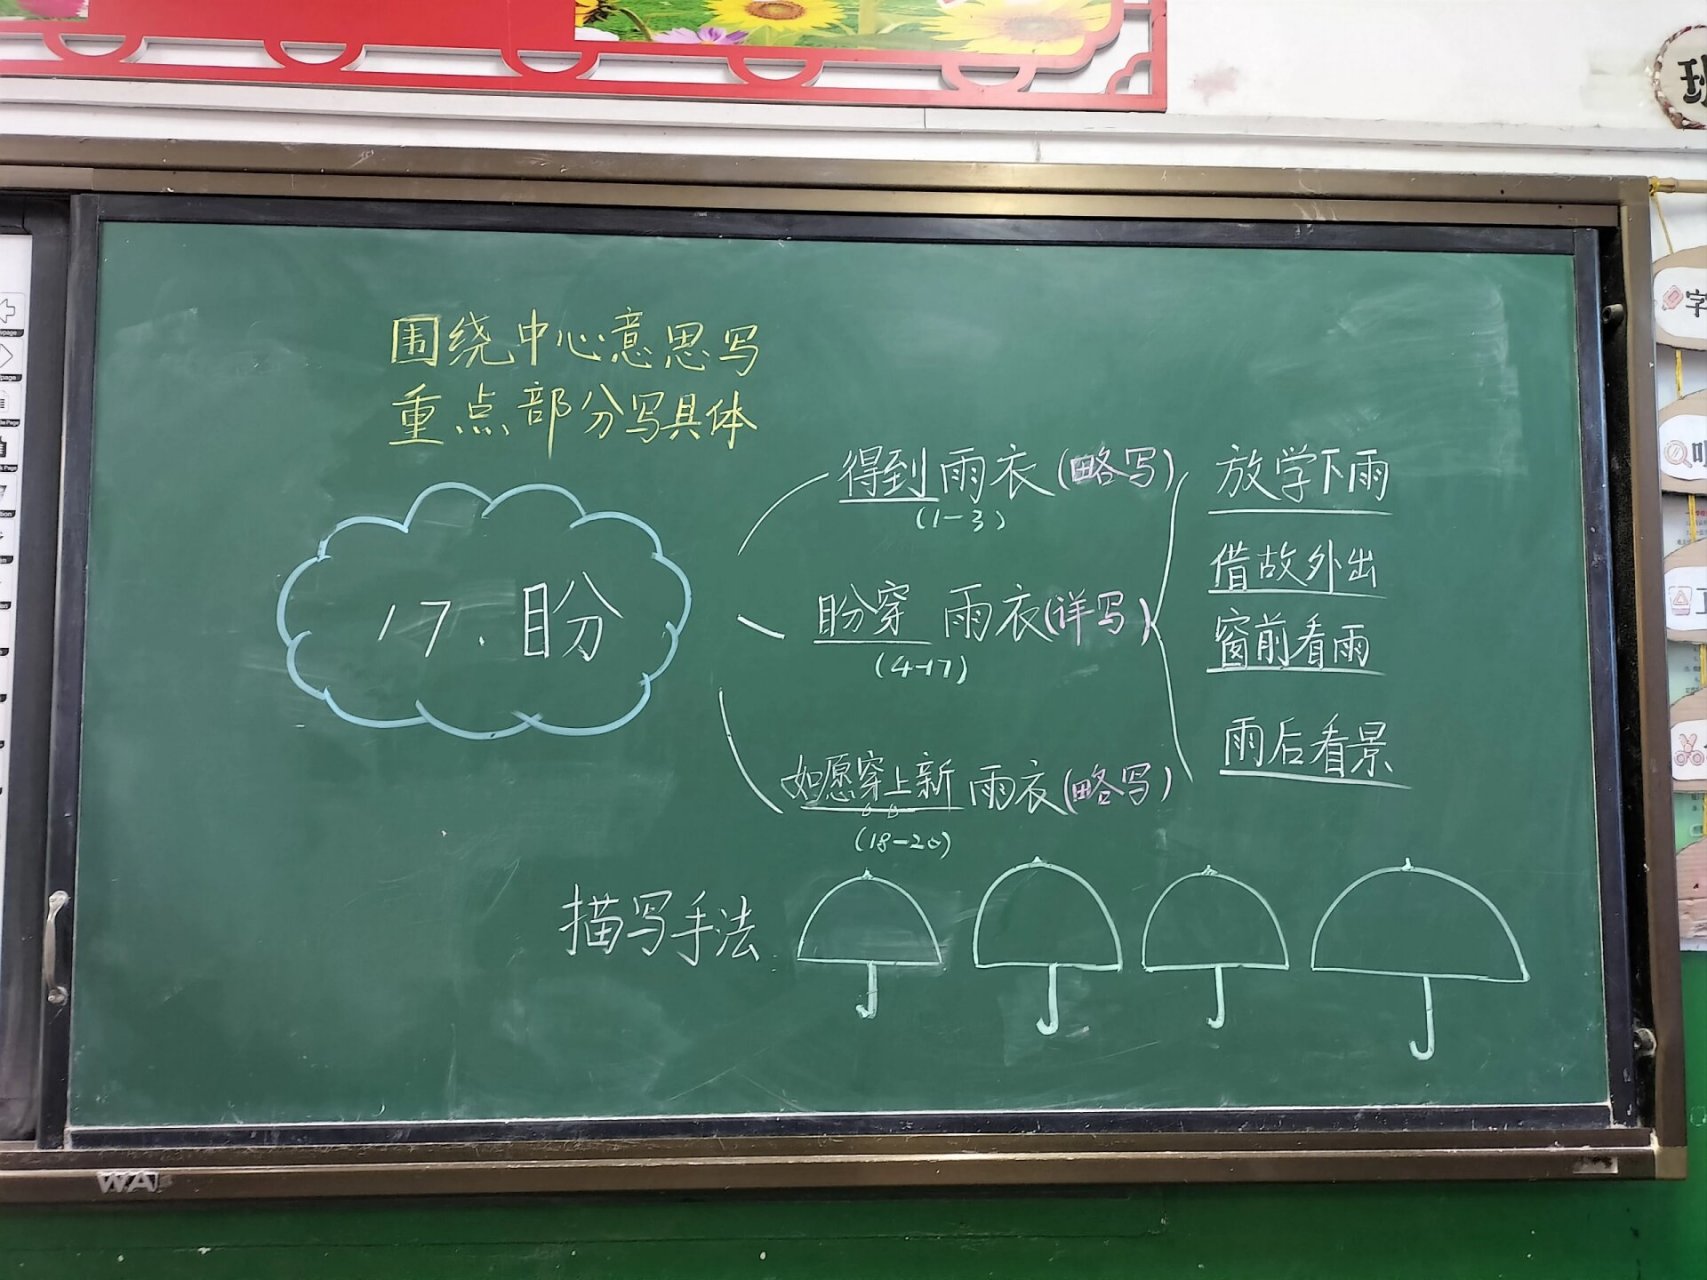 围绕中心意思写
重点部分写具体
17.盼
得到雨衣(略写)
(1-3)
盼穿雨衣(详写)
(4-17)
如愿穿上新雨衣(略写)
(18-20)
放学下雨
借故外出
窗前看雨
雨后看景
描写手法
字